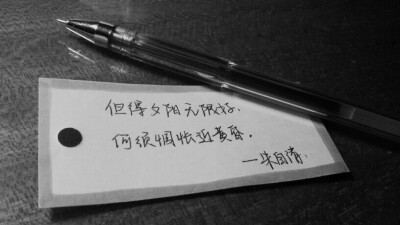 但得夕阳无限好，
何须惆怅近黄昏。
—朱自清